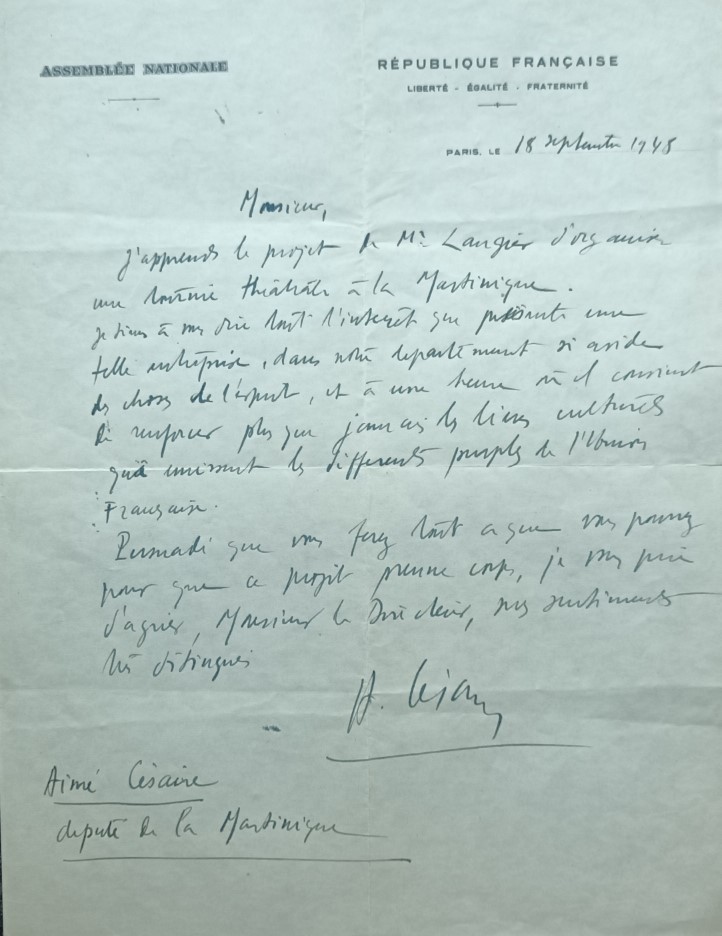 ASSEMBLÉE NATIONALE
RÉPUBLIQUE FRANÇAISE
LIBERTÉ - ÉGALITÉ - FRATERNITÉ
PARIS, LE 18 septembre 1948
Monsieur,
J'apprends le projet de Mr Laugier d'organiser
une tournée théâtrale à la Martinique.
Je tiens à vous dire tout l'intérêt que présente une
telle entreprise, dans notre département si avide
des choses de l'esprit, et à une heure où il convient
de renforcer plus que jamais les liens culturels
qui unissent les différents peuples de l'Union
Française.
Persuadé que vous ferez tout ce que vous pourrez
pour que ce projet prenne corps, je vous prie
d'agréer, Monsieur le Directeur, mes sentiments
très distingués
A. Césaire
Aimé Césaire
député de la Martinique